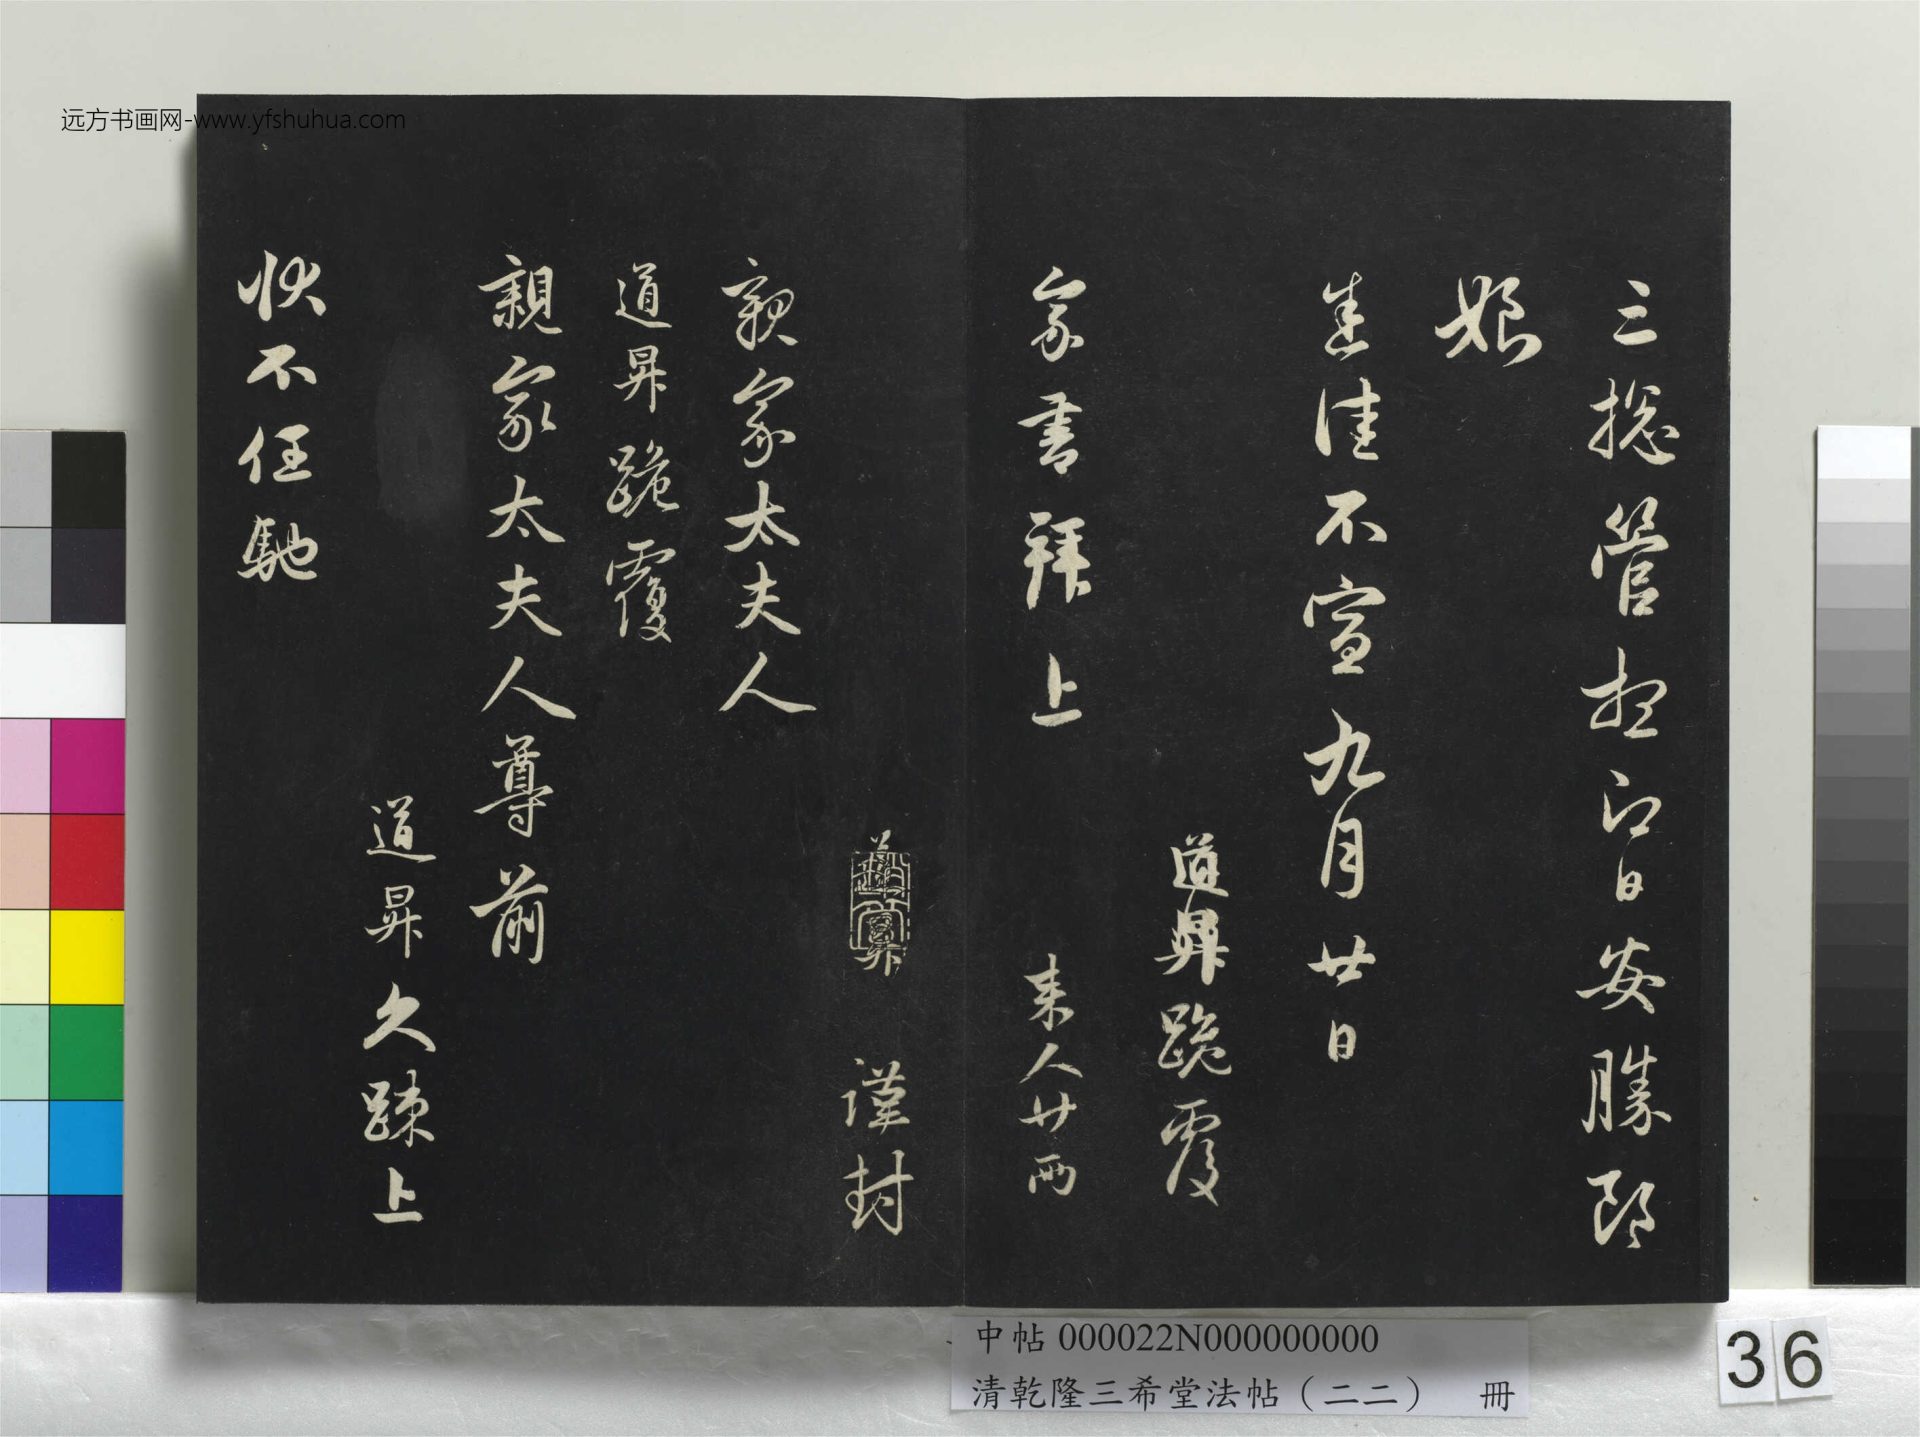 远方书画网-www.yfshuhua.com
三揔管想即日安勝郎
娘
悉佳不宣九月廿日
道昇跪覆
家書拜上 来人廿両
道昇 謹封
親家太夫人
道昇跪覆
親家太夫人尊前
道昇久疎上
狀不任馳
中帖 000022N000000000
清乾隆三希堂法帖（二二） 冊
36